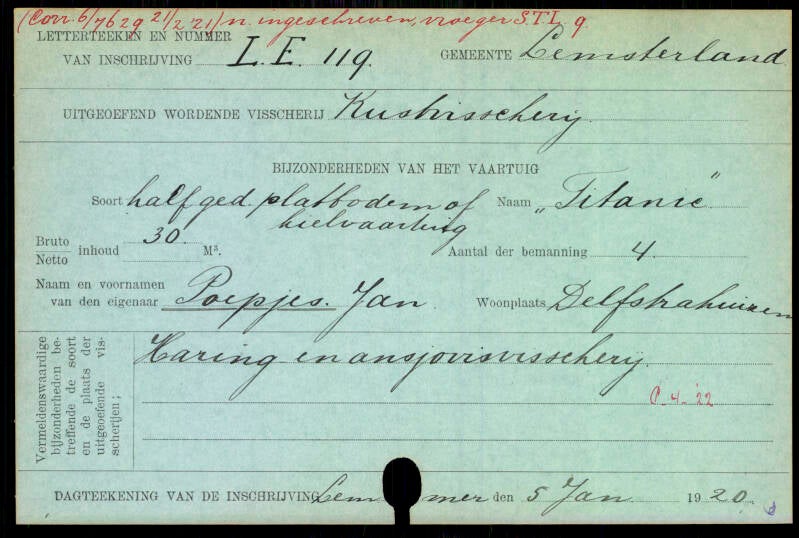 (Corr. 6/7629 21/2 '21) n. ingeschreven, vroeger S.T.L. 9.
LETTERTEEKEN EN NUMMER
VAN INSCHRIJVING L.E. 119. GEMEENTE Lemsterland
UITGEOEFEND WORDENDE VISSCHERIJ Kustvisscherij.
BIJZONDERHEDEN VAN HET VAARTUIG
Soort halfged. platbodem of Naam „Titanic"
kielvaartuig
Bruto
Netto inhoud 30. M³. Aantal der bemanning 4
Naam en voornamen
van den eigenaar Poepjes. Jan Woonplaats Delfstrahuizen
Vermeldenswaardige
bijzonderheden be-
treffende de soort
en de plaats der
uitgeoefende vis-
scherijen;
Haring en ansjovisvisscherij.
P. 4 - '22
DAGTEEKENING VAN DE INSCHRIJVING Lemmer den 5 Jan. 1920.